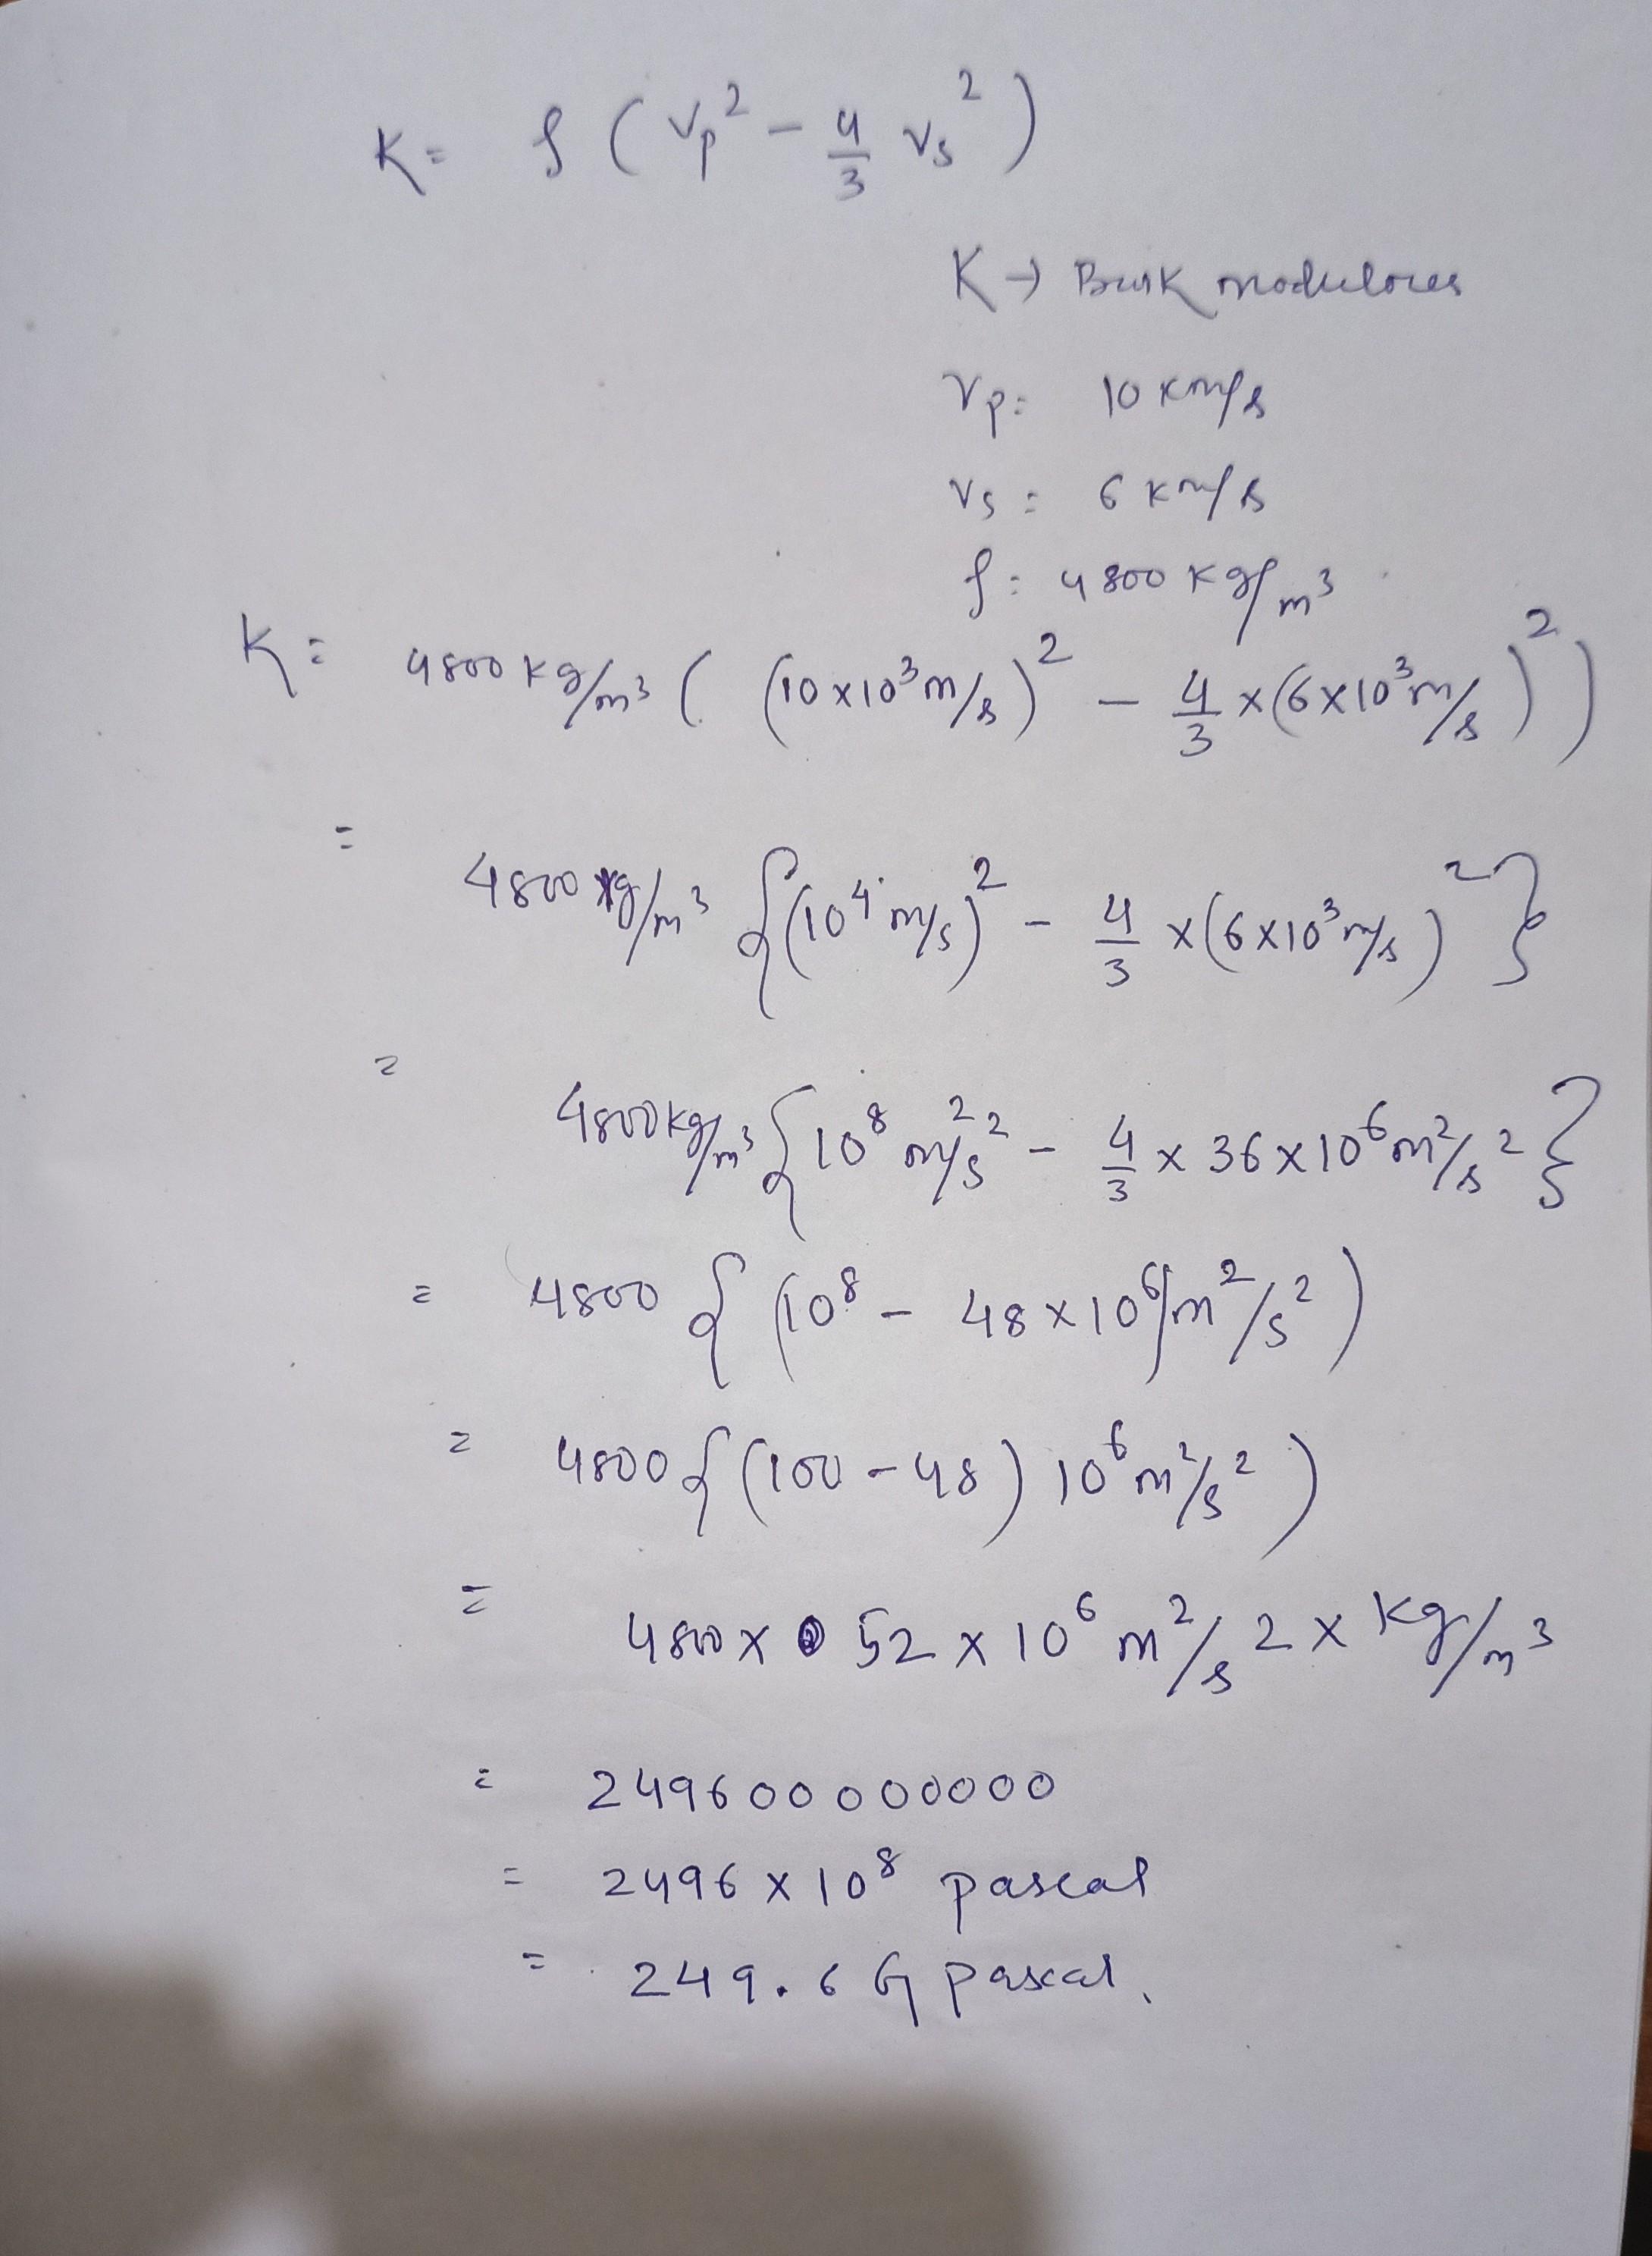 K = ρ ( Vp² - 4/3 Vs² )
K → Bulk modulous
Vp = 10 Km/s
Vs = 6 Km/s
ρ = 4800 Kg/m³
K = 4800 Kg/m³ ( (10x10³m/s)² - 4/3 x (6x10³m/s)² )
= 4800 Kg/m³ { (10⁴ m/s)² - 4/3 x (6x10³m/s)² }
= 4800 Kg/m³ { 10⁸ m²/s² - 4/3 x 36x10⁶m²/s² }
= 4800 { (10⁸ - 48x10⁶)m²/s² )
= 4800 { (100-48) 10⁶m²/s² )
= 4800x 52 x 10⁶ m²/s² x Kg/m³
= 249600000000
= 2496 x 10⁸ pascal
= 249.6 G pascal.